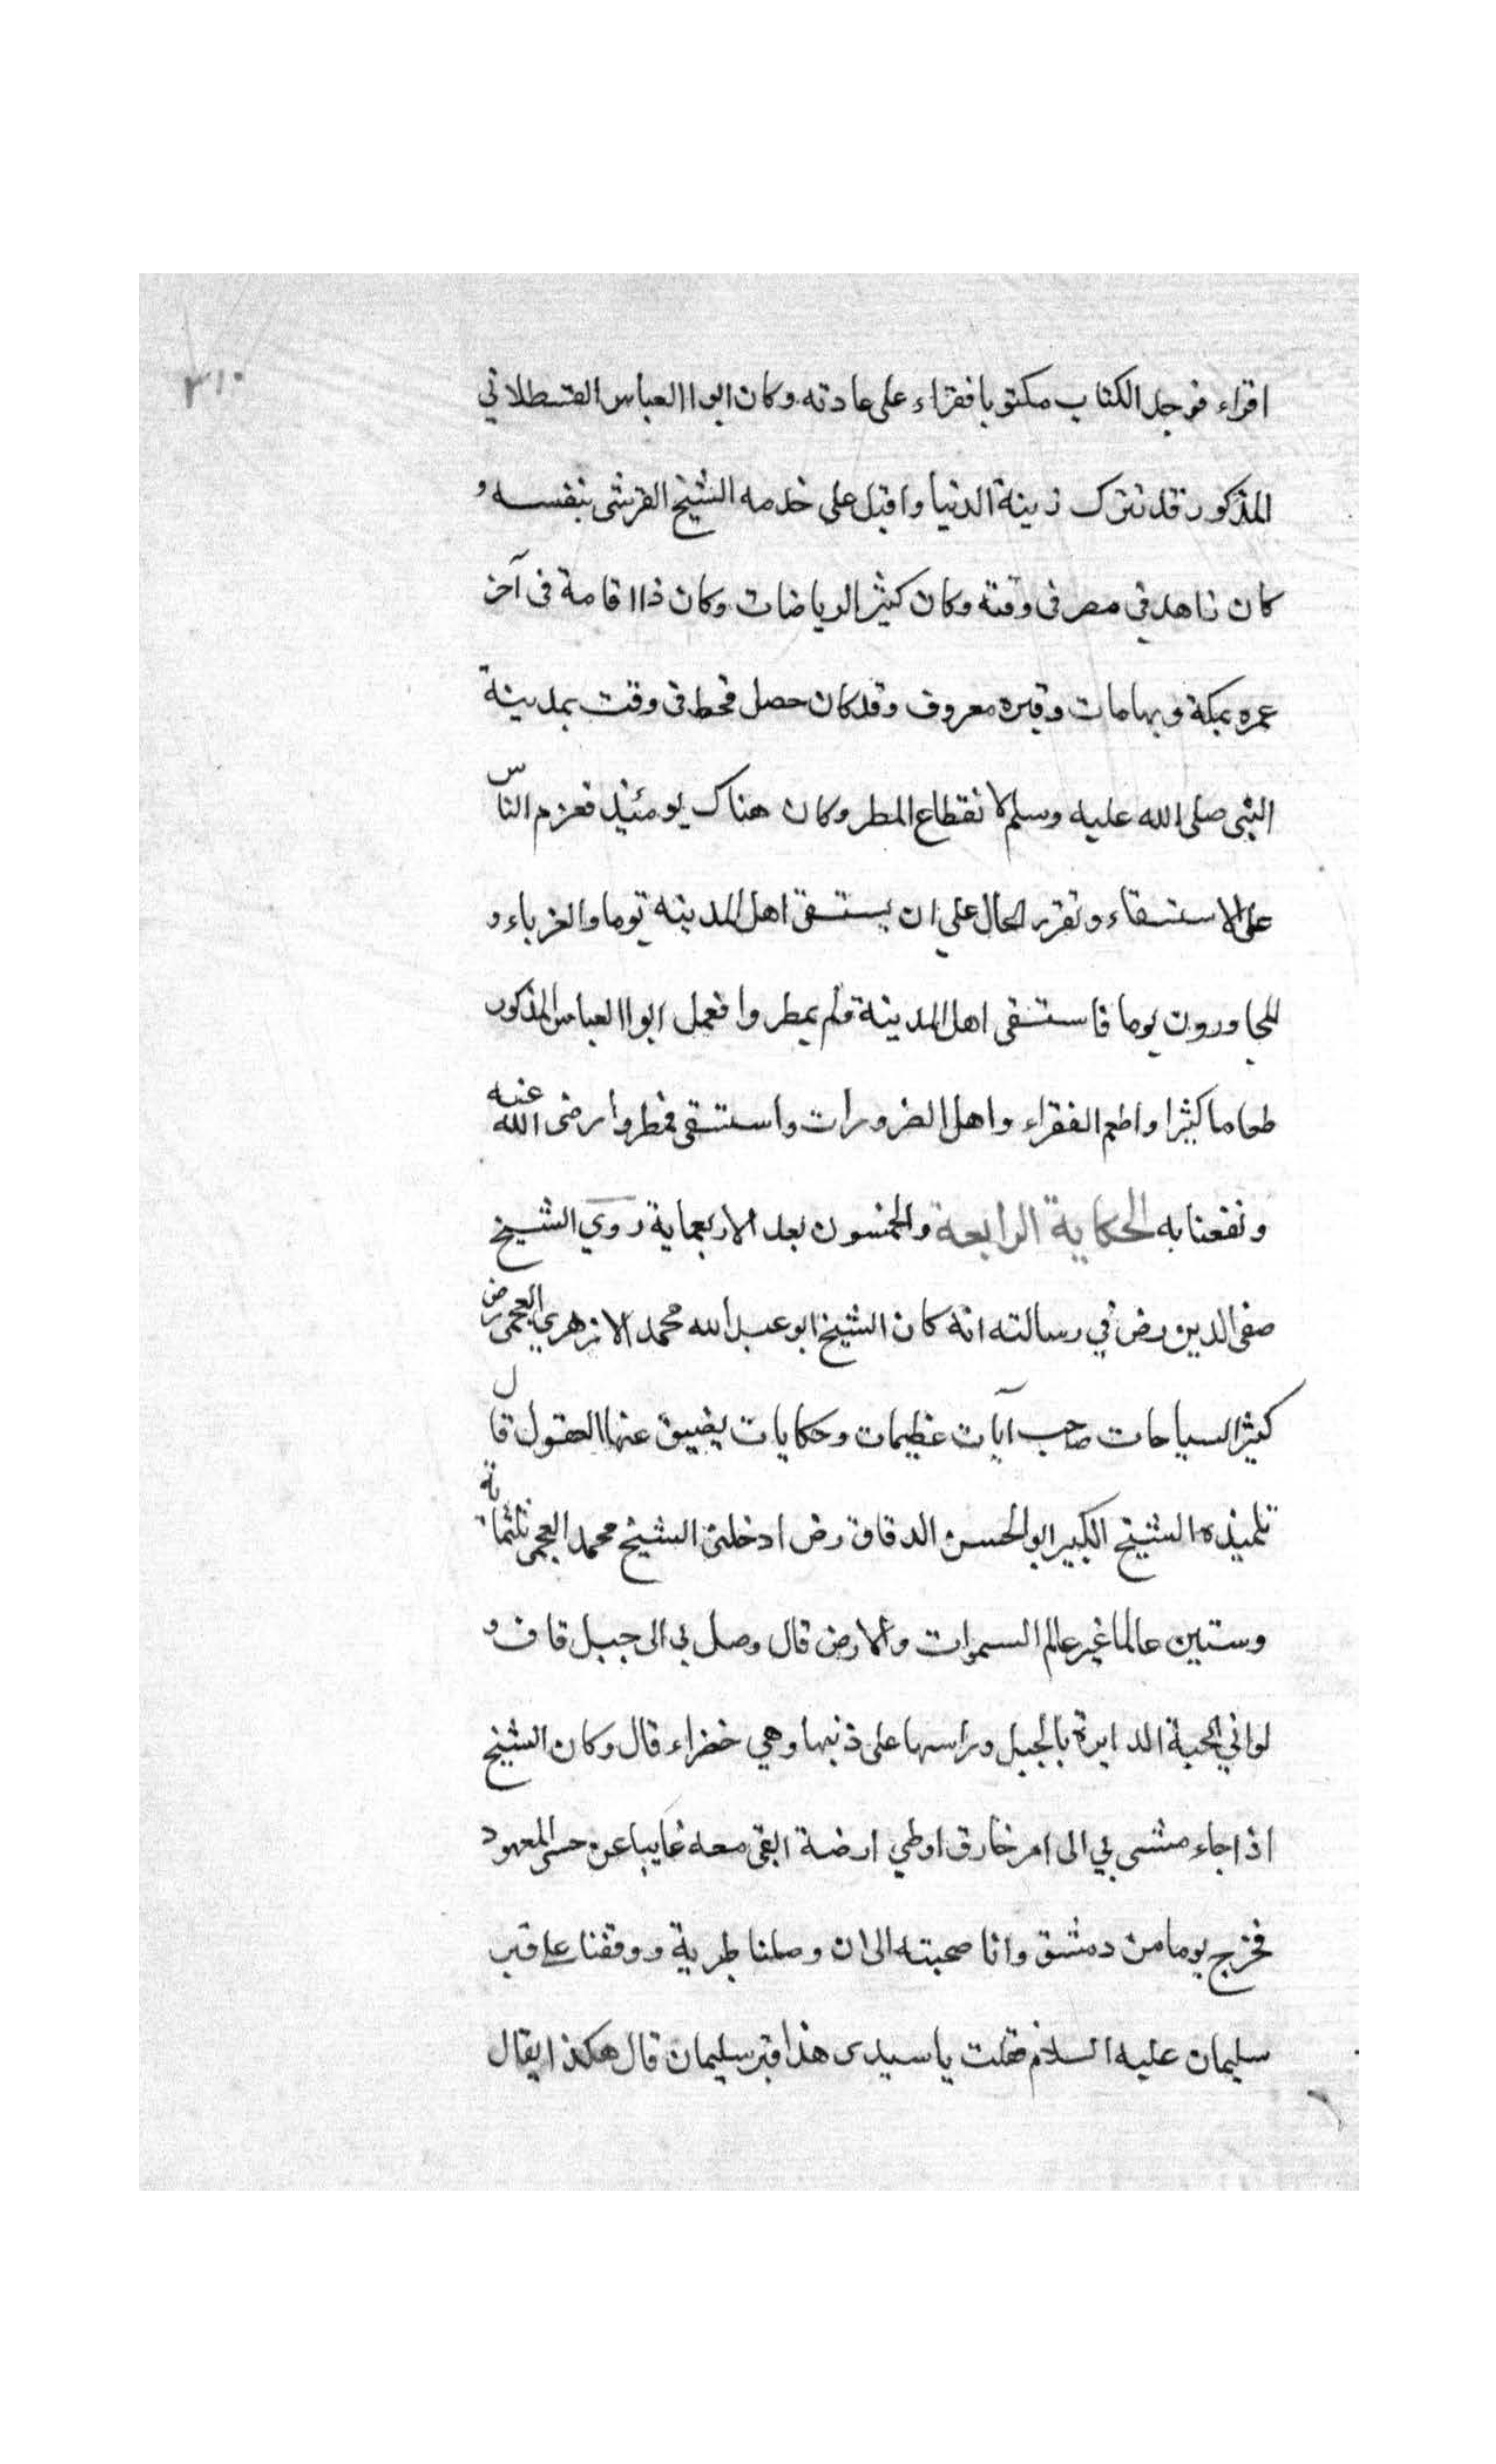 ٣١٠
اقراء فوجد الكتاب مكتوبا فقراء على عادته وكان ابو العباس القسطلاني
المذكور قد ترك زينة الدنيا واقبل على خدمه الشيخ القرشى بنفسه و
كان زاهد في مصر فى وقته وكان كثير الرياضات وكان ذا اقامة فى آخر
عمره بمكة وبها مات وقبره معروف وقد كان حصل قحط فى وقت بمدينة
النبى صلى الله عليه وسلم لانقطاع المطر وكان هناك يومئيذ فعزم الناس
على الاستسقاء وتقرر الحال علي ان يستسقى اهل المدينه يوما والغرباء و
المجاورون يوما فاستسقى اهل المدينة فلم يمطروا فعمل ابو العباس المذكور
طعاما كثيرا واطعم الفقراء واهل الضرورات واستسقى فمطروا رضى الله عنه
ونفعنا به الحكاية الرابعة والخمسون بعد الاربعماية روي الشيخ
صفى الدين رض في رسالته انه كان الشيخ ابو عبد الله محمد الازهري العجمى رض
كثير السياحات صاحب آيات عظيمات وحكايات يضيق عنها العقول قال
تلميذه الشيخ الكبير ابو الحسن الدقاق رض ادخلنى الشيخ محمد العجمى ثلثماتة
وستين عالما غير عالم السموات والارض قال وصل بي الى جبل قاف و
لواني الحية الدايرة بالجبل وراسها على ذنبها وهي خضراء قال وكان الشيخ
اذا جاء مشى بي الى امر خارق اوطي ارضة ابقى معه غايبا عن حسى المعهود
فخرج يوما من دمشق وانا صحبته الى ان وصلنا طبرية ووقفنا على قبر
سليمان عليه السلام فقلت يا سيدى هذا قبر سليمان قال هكذا يقال